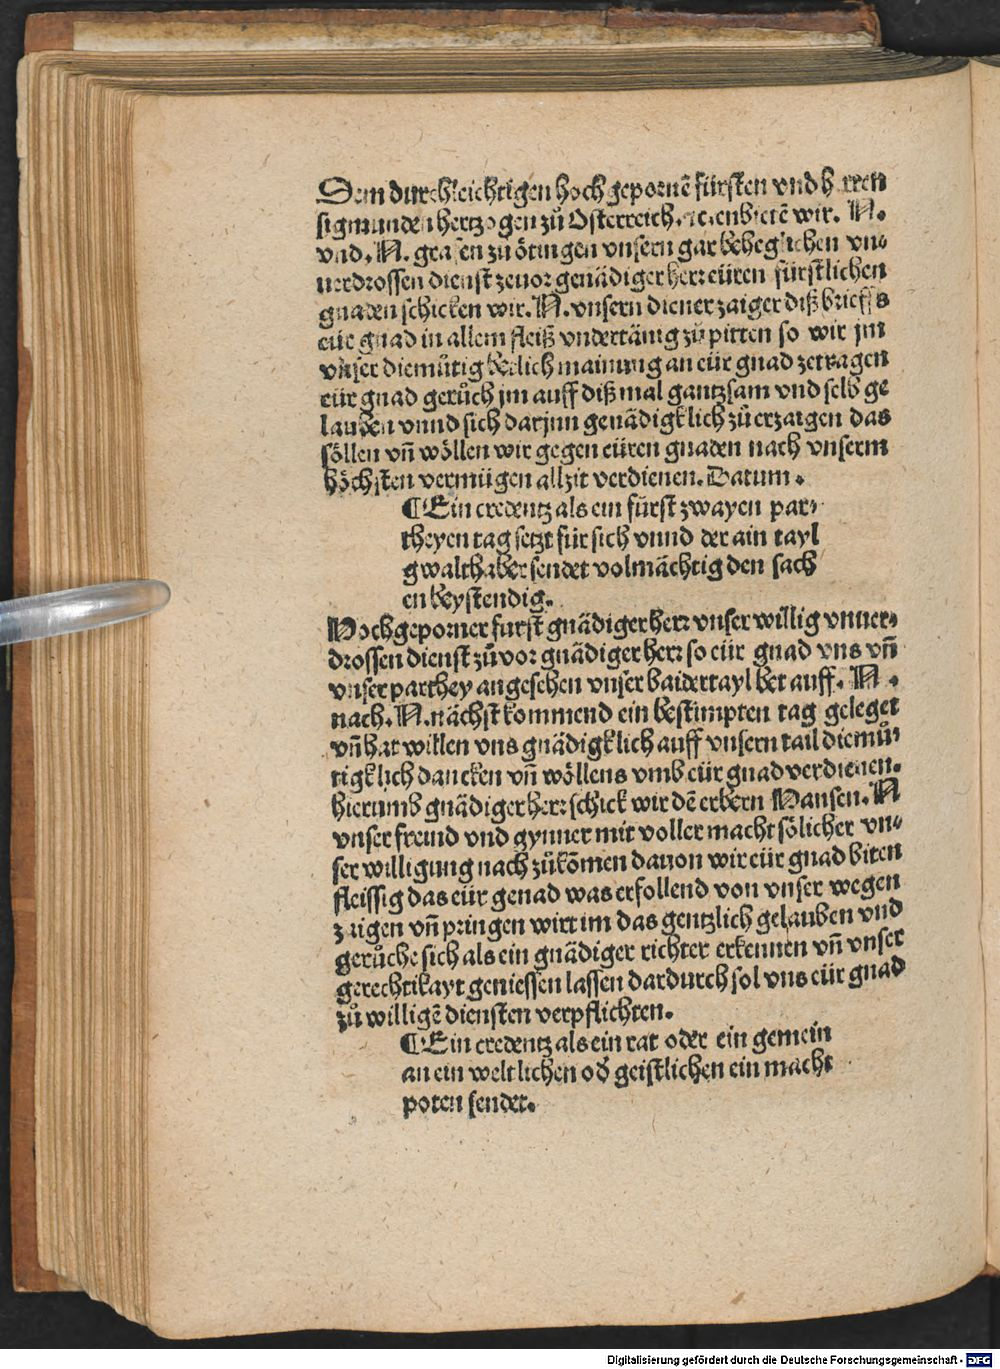 Dem durchleichtigen hochgepornē fürsten vnd herren
sigmunden hertzogen zů Osterreich. ꝛc. enbietē wir. N.
vnd. N. grafen zu ötingen vnsern gar beheglichen vn-
uerdrossen dienst zeuor genädiger herr eüren fürstlichen
gnaden schicken wir. N. vnsern diener zaiger diß brieffs
eür gnad in allem fleiß vndertänig zů pitten so wir jm
vnser diemůtig bedlich mainung an eür gnad zetragen
eür gnad gerůch jm auff diß mal gantzsam vnd selb ge
lauben vnnd sich darjnn genädigklich zů erzaigen das
söllen vñ wöllen wir gegen eüren gnaden nach vnserm
höchsten vermügen allzit verdienen. Datum.
¶ Ein credentz als ein fürst zwayen par-
theyen tag setzt für sich vnnd der ain tayl
gwalthaber sendet volmächtig den sach
en beystendig.
Hochgeporner furst gnädiger herr vnser willig vnuer-
drossen dienst zů vor gnädiger herr so eür gnad vns vñ
vnser parthey angesehen vnser baidertayl bet auff. N.
nach. N. nächst kommend ein bestimpten tag geleget
vñ hat willen vns gnädigklich auff vnsern tail diemů-
tigklich dancken vñ wöllens vmb eür gnad verdienen.
hierumb gnädiger herr schick wir dē erbern Hansen. N
vnser freund vnd gynner mit voller macht sölicher vn-
ser willigung nach zůkōmen dauon wir eür gnad biten
fleissig das eür genad was erfollend von vnser wegen
zaigen vñ pringen wirt im das gentzlich gelauben vnd
gerůche sich als ein gnädiger richter erkennen vñ vnser
gerechtikayt geniessen lassen dardurch sol vns eür gnad
zů willigē diensten verpflichten.
¶ Ein credentz als ein rat oder ein gemein
an ein weltlichen od̓ geistlichen ein macht
poten sendet.
Digitalisierung gefördert durch die Deutsche Forschungsgemeinschaft - DFG